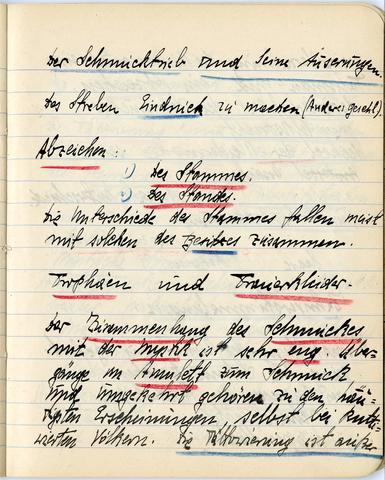 Der Schmucktrieb und seine Äuserungen
Das Streben Eindruck zu machen (Ander. Geschl.)
Abzeichen: 1) Des Stammes.
2) Des Standes.
Die Unterschiede des Stammes fallen meist
mit solchen des Besitzes zusammen.
Trophäen und Trauerkleider.
Der Zusammenhang des Schmuckes
mit der Mystik ist sehr eng. Über-
gänge im Amulett zum Schmuck
und umgekehrt gehören zu den häu-
figsten Erscheinungen, selbst bei kulti-
vierten Völkern. Die Tättowierung ist außer